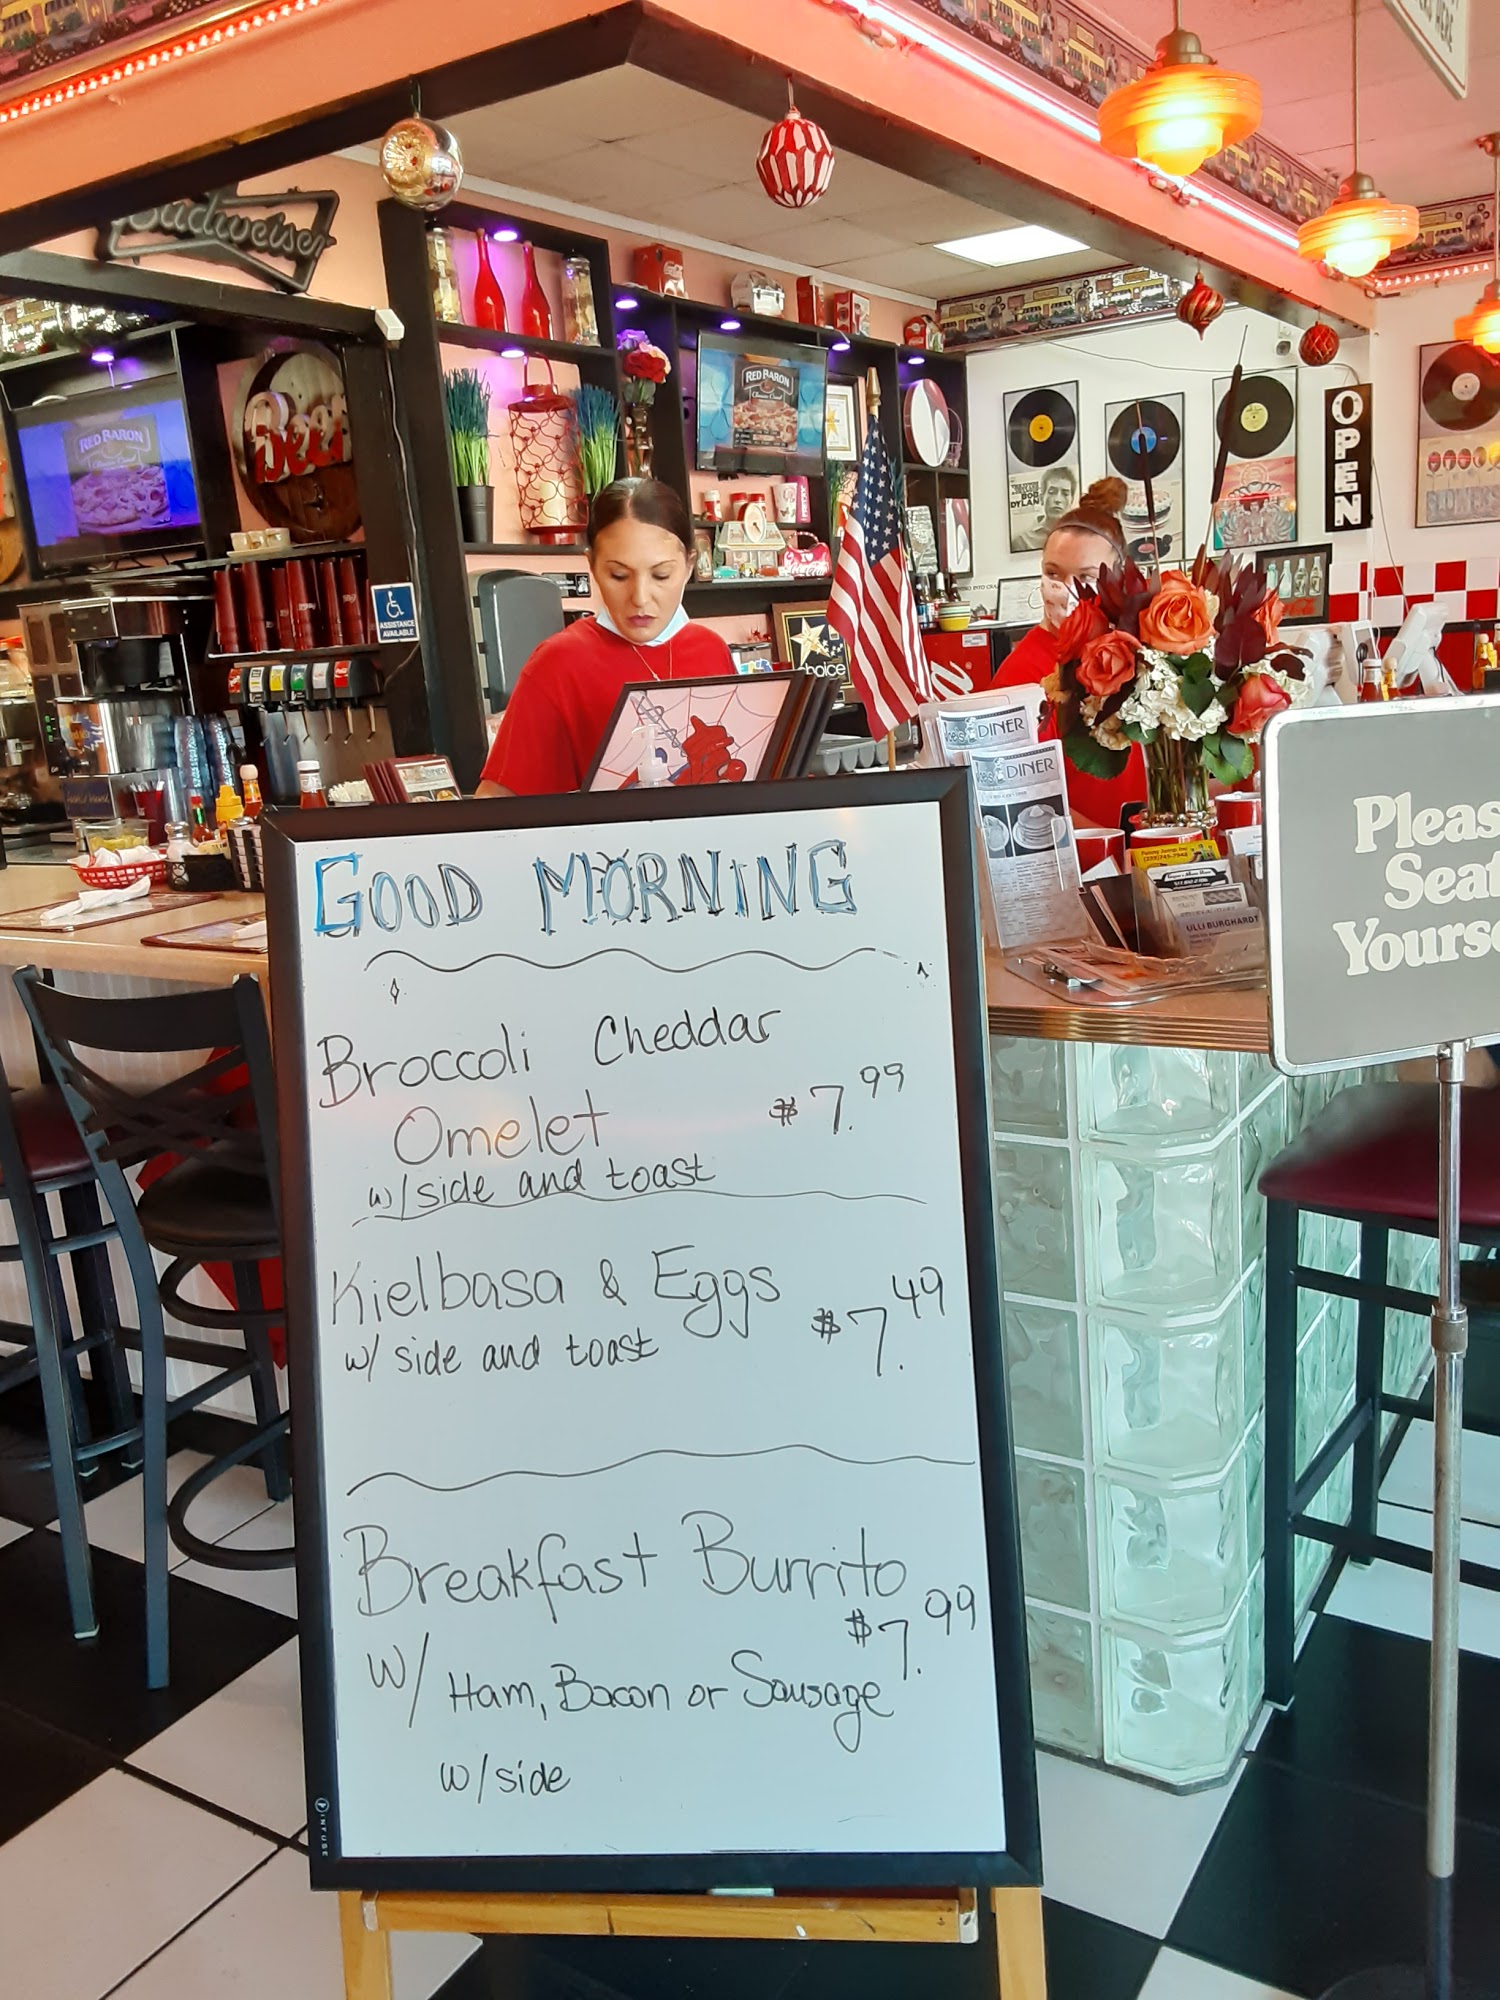 Budweiser
RED BARON
RED BARON
Beer
ASSISTANCE
AVAILABLE
BOB
DYLAN
OPEN
DINER
DINER
ULLI BURGHARDY
Please
Seat
GOOD MORNING
Broccoli Cheddar
Omelet $7.99
w/ side and toast
Kielbasa & Eggs
$7.49
w/ side and toast
Breakfast Burrito
$7.99
w/ Ham, Bacon or Sausage
w/ side